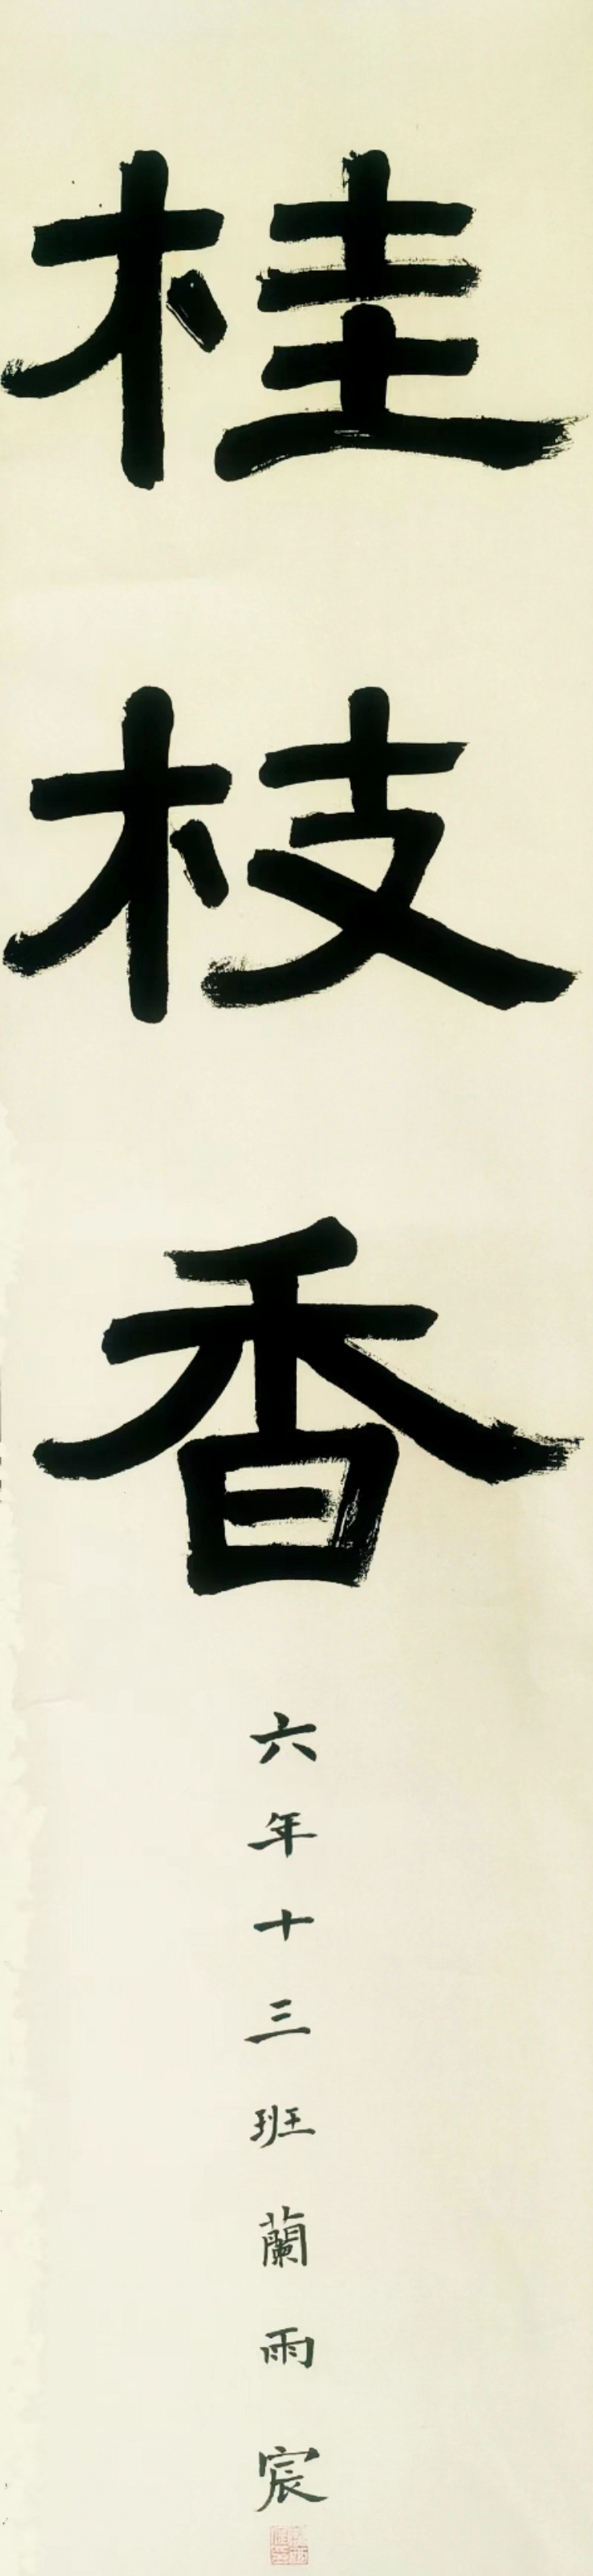 桂枝香
六年十三班蘭雨宸